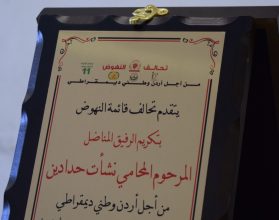 تحالف النهوض
11
من أجل أردن وطني ديمقراطي
يتقدم تحالف قائمة النهوض
بتكريم الرفيق المناضل
المرحوم المحامي نشأت حدادين
من أجل أردن وطني ديمقراطي